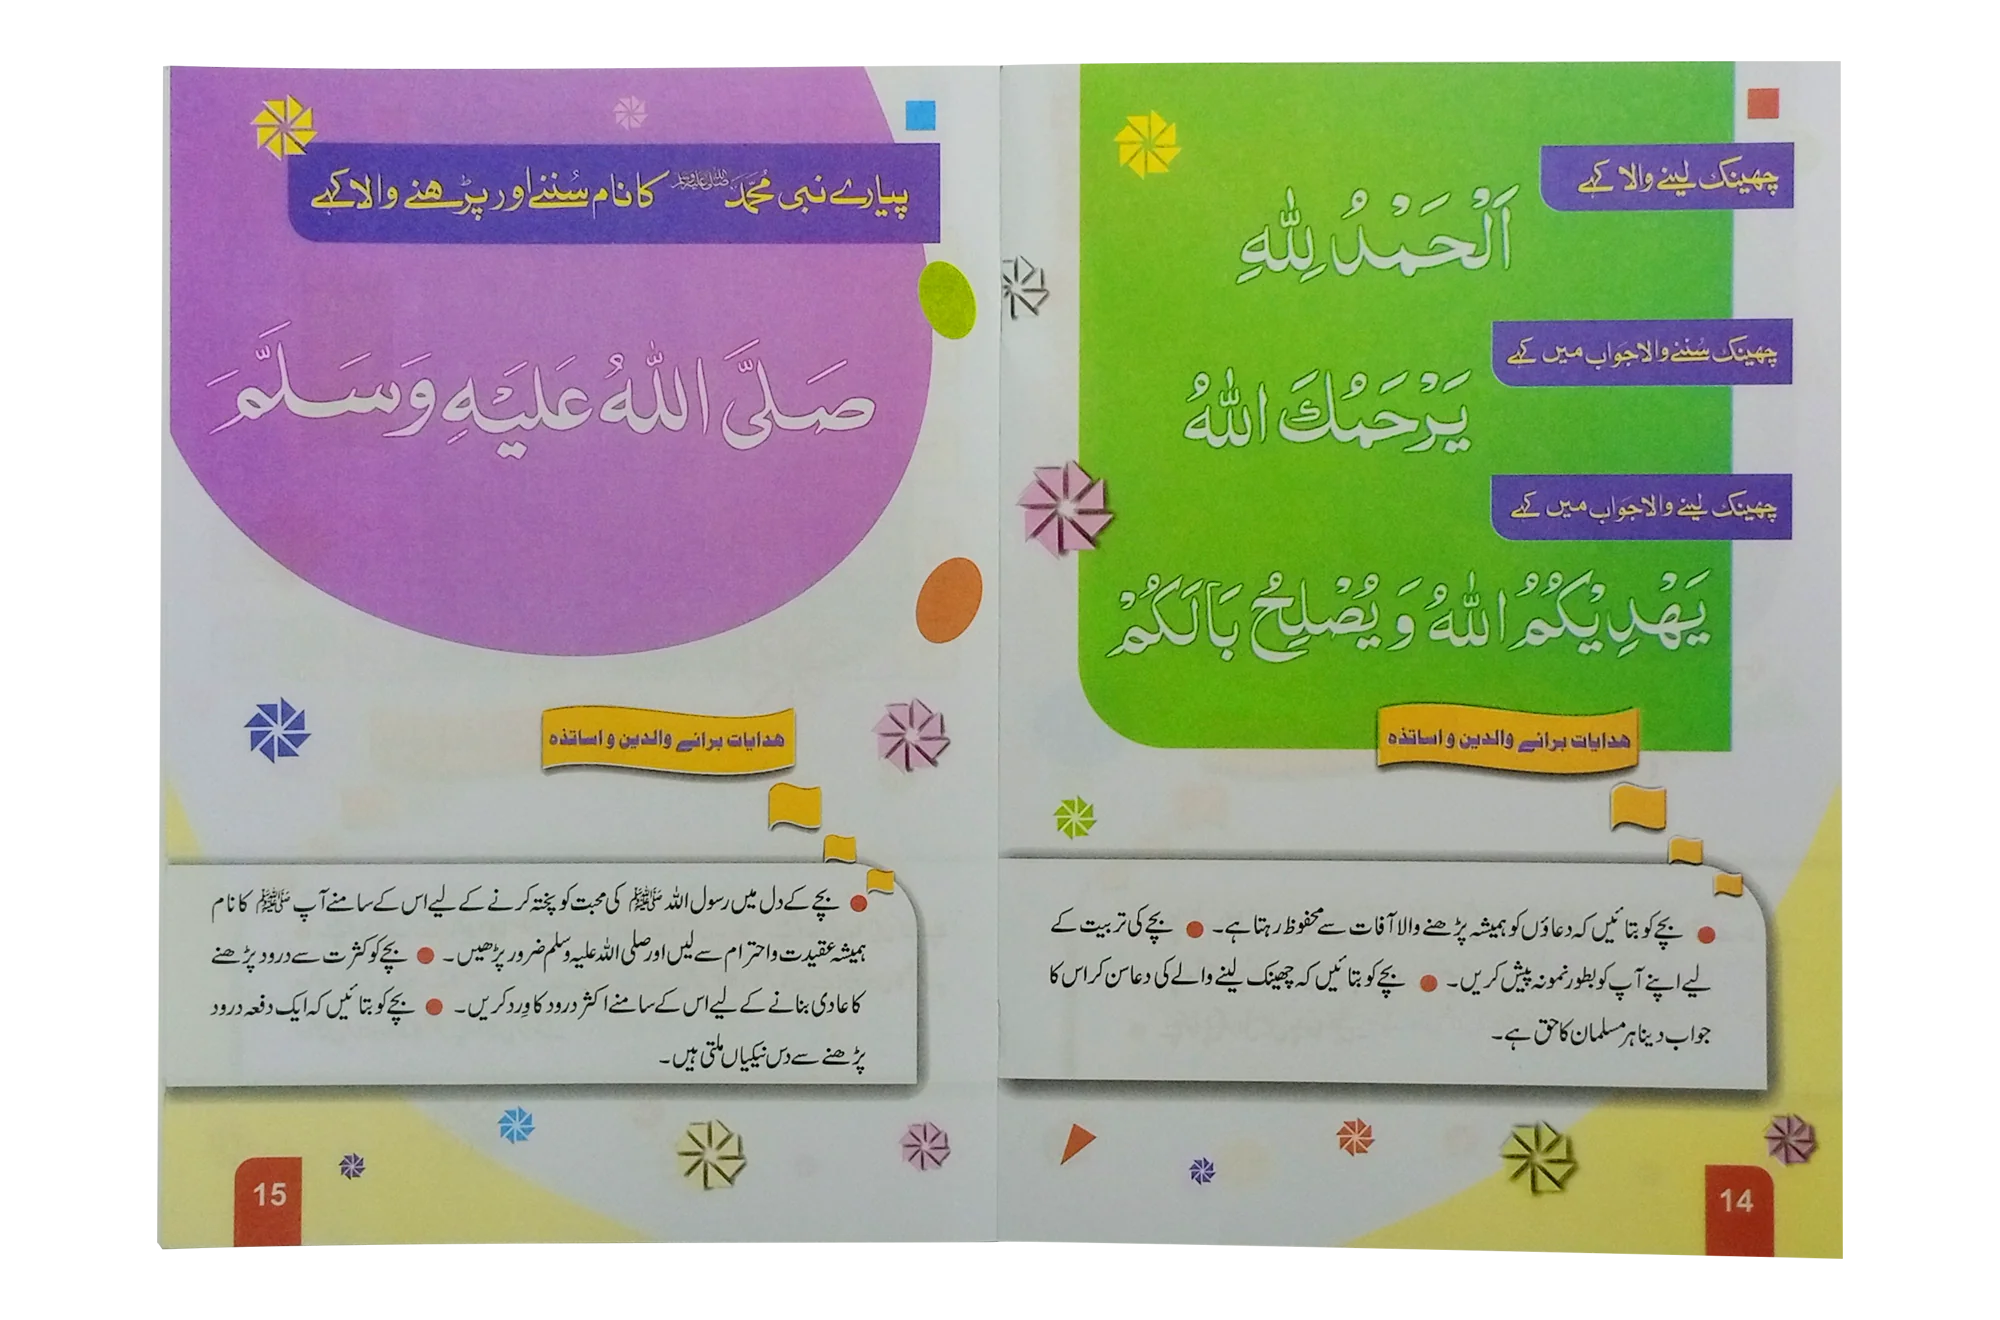 چھینک لینے والا کہے
اَلْحَمْدُ لِلّٰهِ
چھینک سُننے والا جواب میں کہے
يَرْحَمُكَ اللّٰهُ
چھینک لینے والا جواب میں کہے
يَهْدِيْكُمُ اللّٰهُ وَيُصْلِحُ بَالَكُمْ
ھدایات برائے والدین و اساتذہ
● بچے کو بتائیں کہ دعاؤں کو ہمیشہ پڑھنے والا آفات سے محفوظ رہتا ہے۔ ● بچے کی تربیت کے
لیے اپنے آپ کو بطور نمونہ پیش کریں۔ ● بچے کو بتائیں کہ چھینک لینے والے کی دعا سن کر اس کا
جواب دینا ہر مسلمان کا حق ہے۔
14
پیارے نبی مُحمَّد ﷺ کا نام سُننے اور پڑھنے والا کہے
صَلَّى اللّٰهُ عَلَيْهِ وَسَلَّمَ
ھدایات برائے والدین و اساتذہ
● بچے کے دل میں رسول اللہ ﷺ کی محبت کو پختہ کرنے کے لیے اس کے سامنے آپ ﷺ کا نام
ہمیشہ عقیدت و احترام سے لیں اور صلی اللہ علیہ وسلم ضرور پڑھیں۔ ● بچے کو کثرت سے درود پڑھنے
کا عادی بنانے کے لیے اس کے سامنے اکثر درود کا وِرد کریں۔ ● بچے کو بتائیں کہ ایک دفعہ درود
پڑھنے سے دس نیکیاں ملتی ہیں۔
15